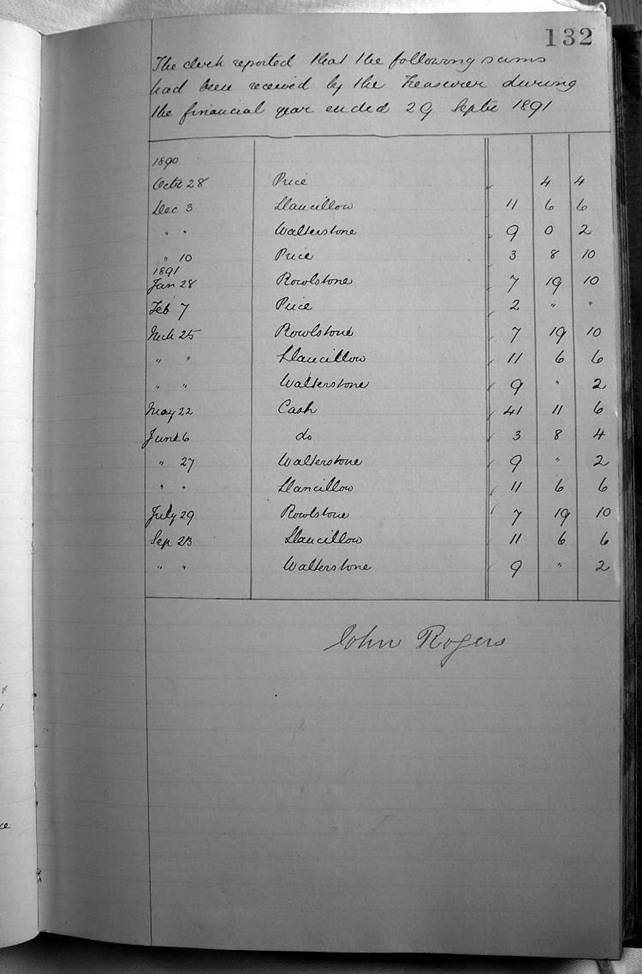 132
The clerk reported that the following sums
had been received by the Treasurer during
the financial year ended 29 Septr 1891
1890
Octr 28 Price 4 4
Dec 3 Llancillow 11 6 6
" " Walterstone 9 0 2
" 10 Price 3 8 10
1891
Jan 28 Rowlstone 7 19 10
Feb 7 Price 2 " "
Mch 25 Rowlstone 7 19 10
" " Llancillow 11 6 6
" " Walterstone 9 " 2
May 22 Cash 41 11 6
June 6 do 3 8 4
" 27 Walterstone 9 " 2
" " Llancillow 11 6 6
July 29 Rowlstone 7 19 10
Sep 23 Llancillow 11 6 6
" " Walterstone 9 " 2
John Rogers